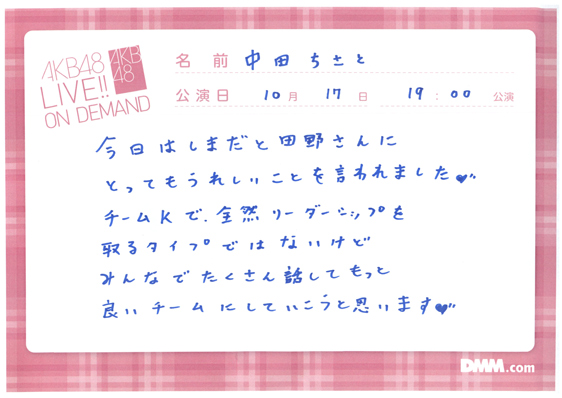 AKB48
LIVE!!
ON DEMAND
AKB
48
名前 中田ちさと
公演日 10月 17日 19:00 公演
今日はしまだと田野さんに
とってもうれしいことを言われました♥
チームKで、全然リーダーシップを
取るタイプではないけど
みんなでたくさん話してもっと
良いチームにしていこうと思います♥
DMM.com